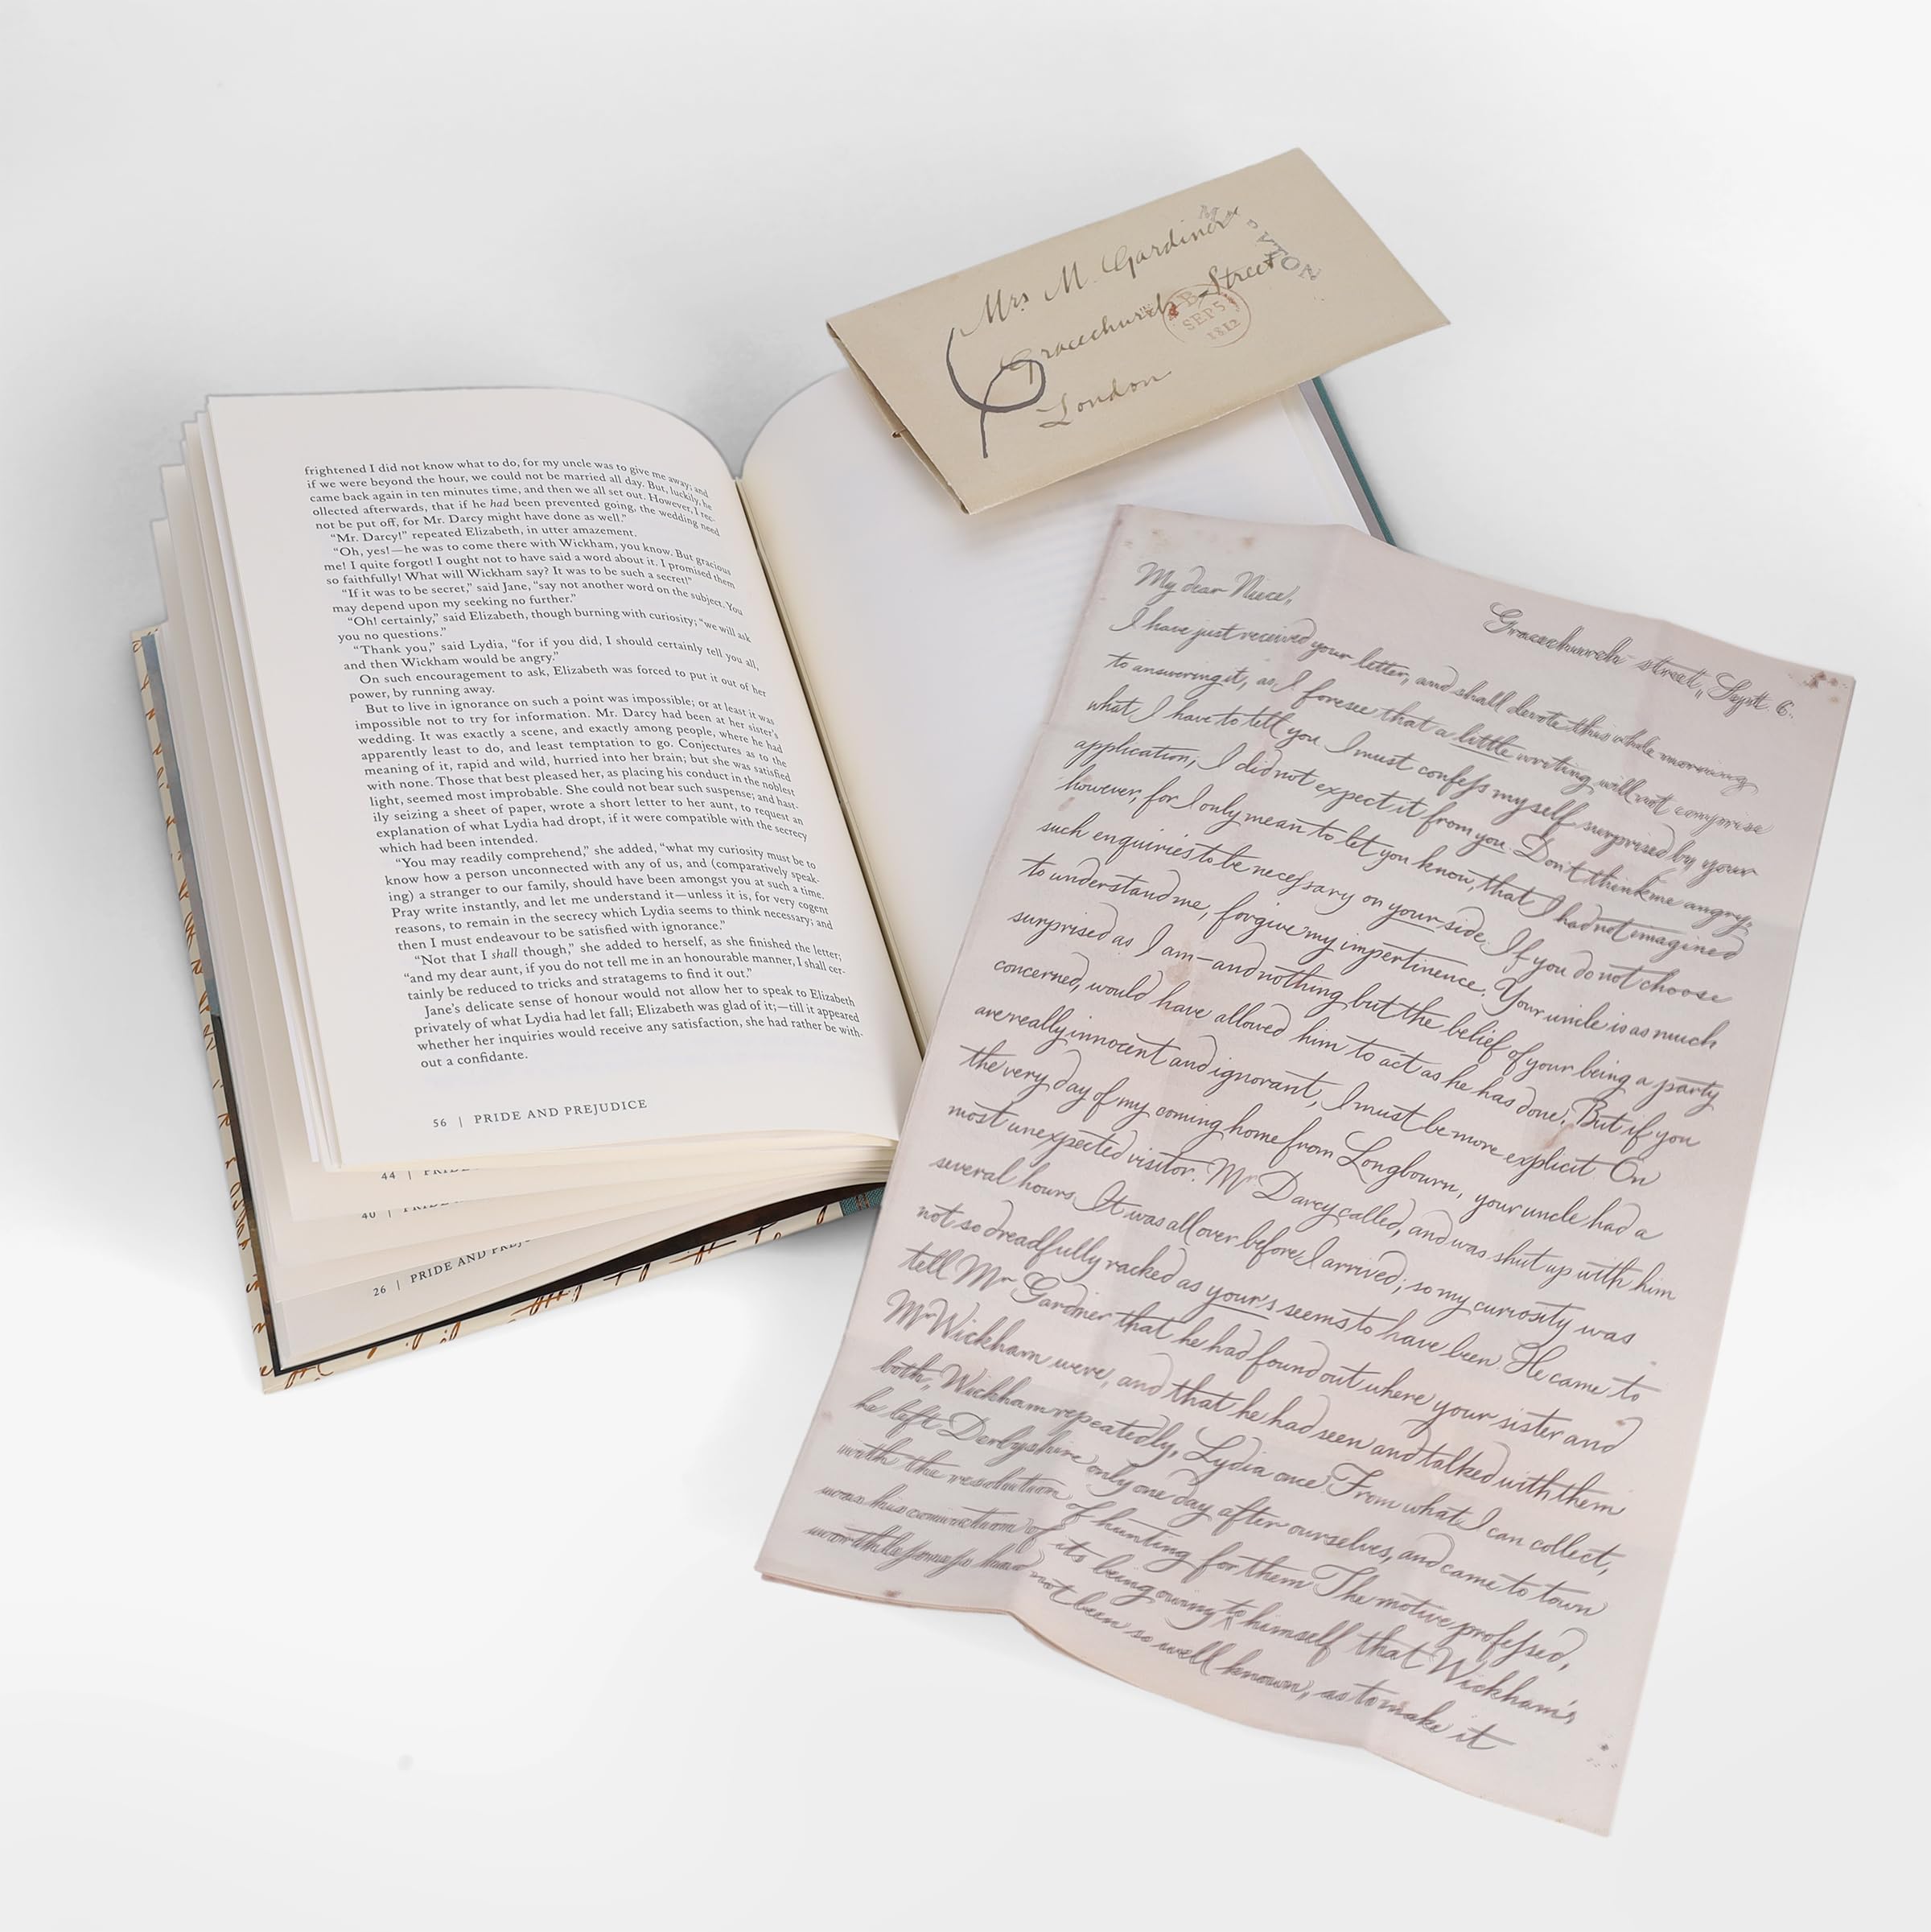 frightened I did not know what to do, for my uncle was to give me away; and
if we were beyond the hour, we could not be married all day. But, luckily, he
came back again in ten minutes time, and then we all set out. However, I rec-
ollected afterwards, that if he had been prevented going, the wedding need
not be put off, for Mr. Darcy might have done as well."
"Mr. Darcy!" repeated Elizabeth, in utter amazement.
"Oh, yes!—he was to come there with Wickham, you know. But gracious
me! I quite forgot! I ought not to have said a word about it. I promised them
so faithfully! What will Wickham say? It was to be such a secret!"
"If it was to be secret," said Jane, "say not another word on the subject. You
may depend upon my seeking no further."
"Oh! certainly," said Elizabeth, though burning with curiosity; "we will ask
you no questions."
"Thank you," said Lydia, "for if you did, I should certainly tell you all,
and then Wickham would be angry."
On such encouragement to ask, Elizabeth was forced to put it out of her
power, by running away.
But to live in ignorance on such a point was impossible; or at least it was
impossible not to try for information. Mr. Darcy had been at her sister's
wedding. It was exactly a scene, and exactly among people, where he had
apparently least to do, and least temptation to go. Conjectures as to the
meaning of it, rapid and wild, hurried into her brain; but she was satisfied
with none. Those that best pleased her, as placing his conduct in the noblest
light, seemed most improbable. She could not bear such suspense; and hast-
ily seizing a sheet of paper, wrote a short letter to her aunt, to request an
explanation of what Lydia had dropt, if it were compatible with the secrecy
which had been intended.
"You may readily comprehend," she added, "what my curiosity must be to
know how a person unconnected with any of us, and (comparatively speak-
ing) a stranger to our family, should have been amongst you at such a time.
Pray write instantly, and let me understand it—unless it is, for very cogent
reasons, to remain in the secrecy which Lydia seems to think necessary; and
then I must endeavour to be satisfied with ignorance."
"Not that I shall though," she added to herself, as she finished the letter;
"and my dear aunt, if you do not tell me in an honourable manner, I shall cer-
tainly be reduced to tricks and stratagems to find it out."
Jane's delicate sense of honour would not allow her to speak to Elizabeth
privately of what Lydia had let fall; Elizabeth was glad of it;—till it appeared
whether her inquiries would receive any satisfaction, she had rather be with-
out a confidante.
56 | PRIDE AND PREJUDICE
44 |
40 |
26 | PRIDE AND
Mrs M Gardiner
Gracechurch Street
London
SEP 5
1812
Gracechurch street, Sept. 6.
My dear Niece,
I have just received your letter, and shall devote this whole morning
to answering it, as I foresee that a little writing will not comprise
what I have to tell you. I must confess myself surprised by your
application; I did not expect it from you. Don't think me angry,
however, for I only mean to let you know, that I had not imagined
such enquiries to be necessary on your side. If you do not choose
to understand me, forgive my impertinence. Your uncle is as much
surprised as I am—and nothing but the belief of your being a party
concerned, would have allowed him to act as he has done. But if you
are really innocent and ignorant, I must be more explicit. On
the very day of my coming home from Longbourn, your uncle had a
most unexpected visitor. Mr Darcy called, and was shut up with him
several hours. It was all over before I arrived; so my curiosity was
not so dreadfully racked as your's seems to have been. He came to
tell Mr Gardner that he had found out where your sister and
Mr Wickham were, and that he had seen and talked with them
both, Wickham repeatedly, Lydia once. From what I can collect,
he left Derbyshire only one day after ourselves, and came to town
with the resolution of hunting for them. The motive professed,
was his conviction of its being owing to himself that Wickham's
worthlessness had not been so well known, as to make it